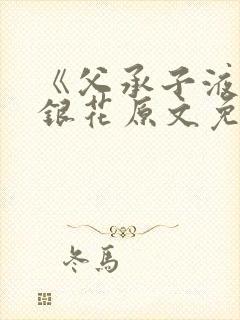 《父承子液
銀花原文免
冬馬